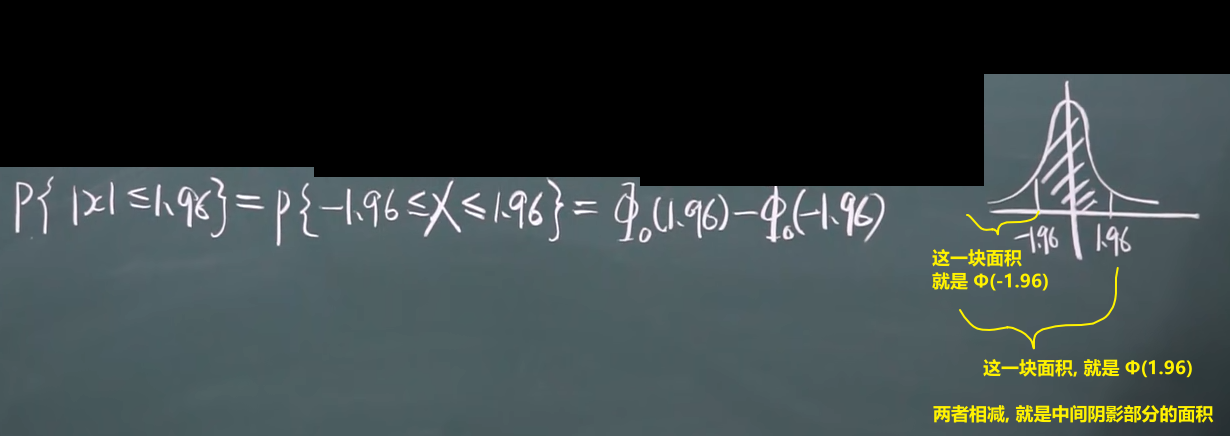 P{ |x| ≤ 1.96} = P{ -1.96 ≤ X ≤ 1.96} = Φ₀(1.96) - Φ₀(-1.96)
-1.96 1.96
这一块面积
就是 Φ(-1.96)
这一块面积, 就是 Φ(1.96)
两者相减, 就是中间阴影部分的面积